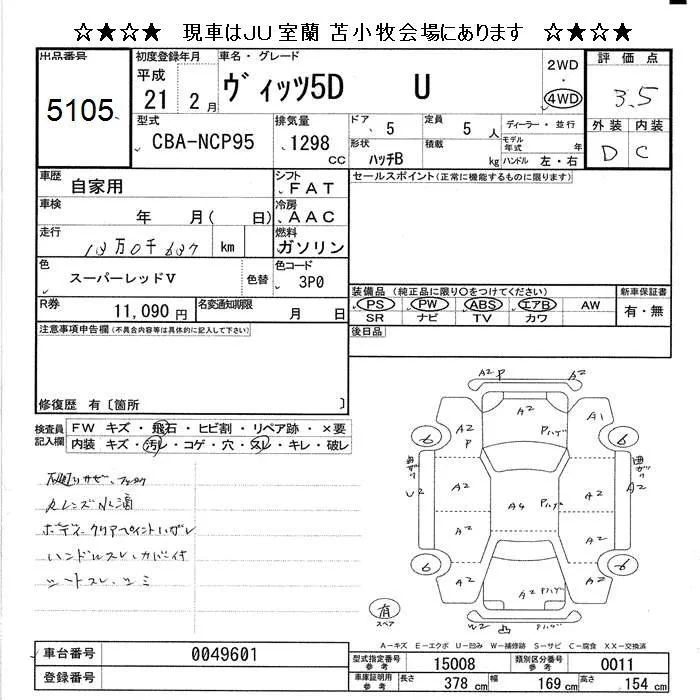 ☆★☆★ 現車はJU室蘭 苫小牧会場にあります ☆★☆★
出品番号 初度登録年月 車名・グレード 2WD 評価点
5105 平成 21 2月 ヴィッツ5D U ・ 4WD 3.5
型式 排気量 ドア 定員 ディーラー・並行 外装 内装
CBA-NCP95 1298 CC 5 5 人 モデル年式 年 D C
形状 ハッチB 積載 kg ハンドル 左・右
車歴 自家用 シフト FAT セールスポイント(正常に機能するものに限ります)
車検 年 月( 日) 冷房 AAC
走行 km 燃料 ガソリン
色 スーパーレッドV 色替 色コード 3P0
装備品(純正品に限り○をつけてください) 新車保証書
PS PW ABS エアB AW 有・無
SR ナビ TV カワ
R券 11,090円 名変通知期限 月 日
後日品
注意事項申告欄(不具合内容等は具体的に記入して下さい)
修復歴 有〔箇所 〕
検査員記入欄 FW キズ・飛石・ヒビ割・リペア跡・×要
内装 キズ・汚レ・コゲ・穴・スレ・キレ・破レ
ボディークリアペイントハガレ
ハンドルスレ、カバー付
シートスレ、シミ
A2 P A2
A2 P A2 Pハゲ A1
6 6
曲ガリ 曲ガリ
U2 A2 A4 Pハゲ A2 A2
A2 A2
6 6
A2 A2 Pハゲ A2
有 スペア
W2 凸 Pハゲ
A-キズ E-エクボ U-凹み W-補修跡 S-サビ C-腐食 XX-交換済
車台番号 0049601
登録番号
型式指定番号 参考 15008 類別区分番号 参考 0011
車庫証明用 参考 長さ 378 cm 幅 169 cm 高さ 154 cm